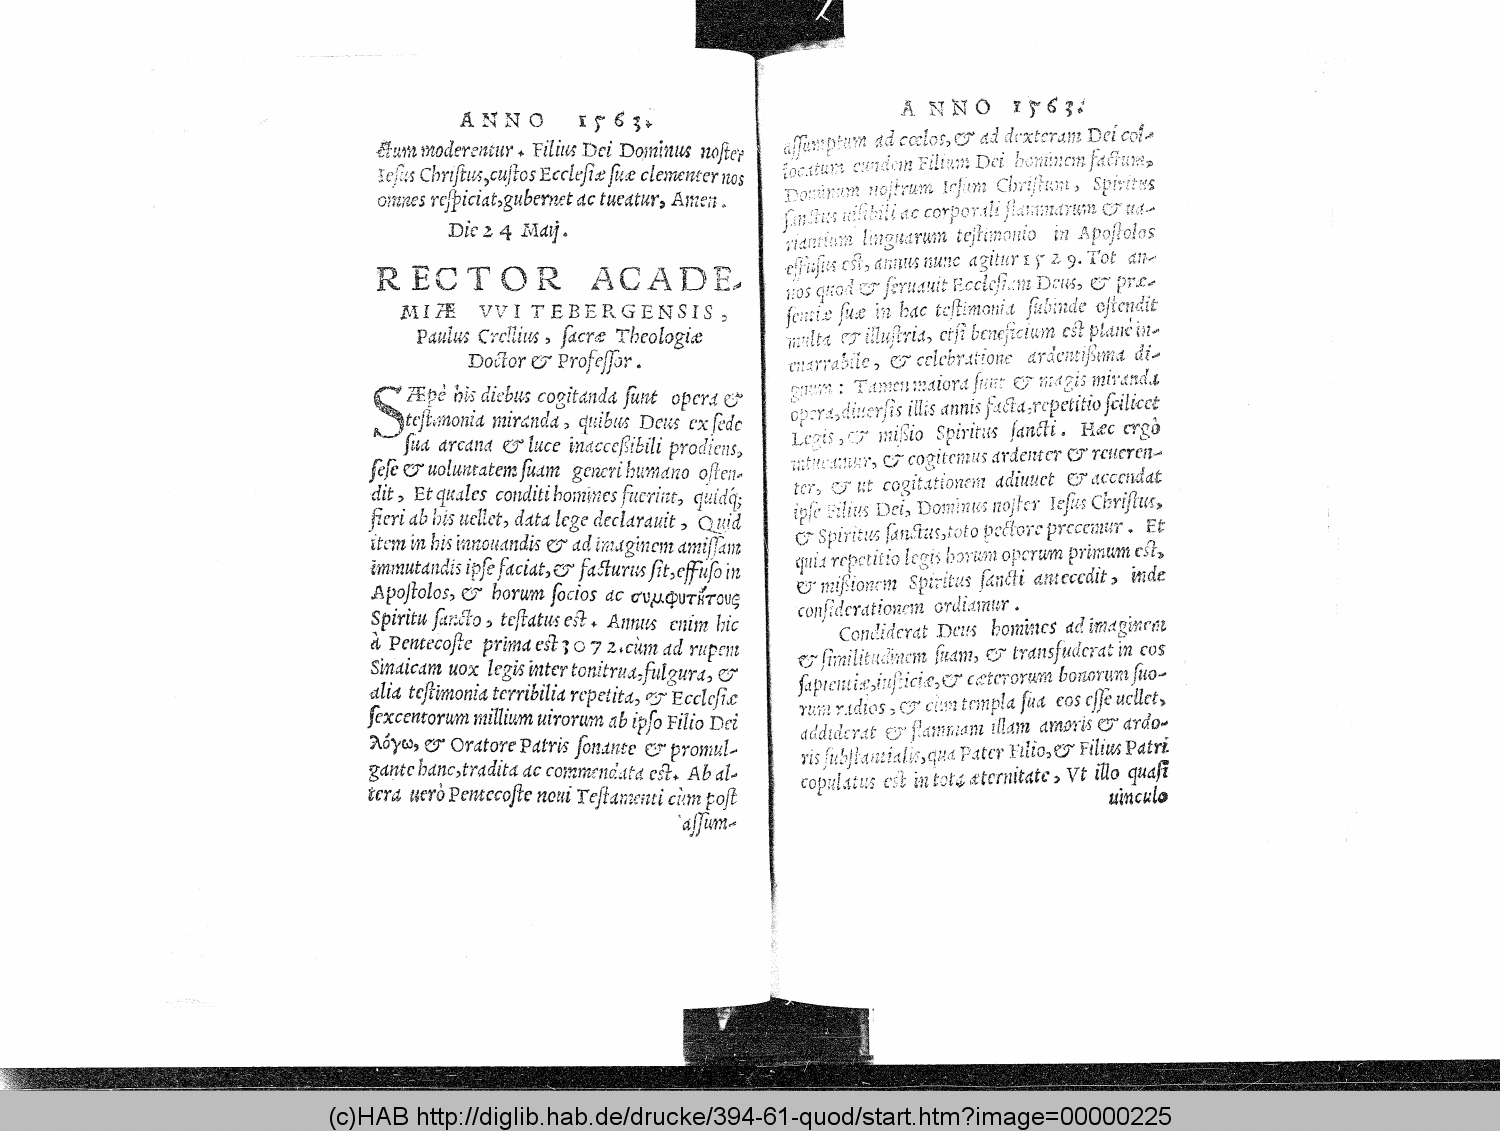 ANNO 1563.
ctum moderentur. Filius Dei Dominus noſter
Ieſus Chriſtus, cuſtos Eccleſiæ ſuæ clementer nos
omnes reſpiciat, gubernet ac tueatur, Amen.
Die 24 Maij.
RECTOR ACADE-
MIÆ VVITEBERGENSIS,
Paulus Crellius, ſacræ Theologiæ
Doctor & Profeſſor.
SÆpè his diebus cogitanda ſunt opera &
teſtimonia miranda, quibus Deus ex ſede
ſua arcana & luce inacceſsibili prodiens,
ſeſe & uoluntatem ſuam generi humano oſten-
dit, Et quales conditi homines fuerint, quidq́;
fieri ab his uellet, data lege declarauit, Quid
item in his innouandis & ad imaginem amiſſam
immutandis ipſe faciat, & facturus ſit, effuſo in
Apoſtolos, & horum ſocios ac συμφυτήτους
Spiritu ſancto, teſtatus eſt. Annus enim hic
à Pentecoſte prima eſt 3072. cùm ad rupem
Sinaicam uox legis inter tonitrua, fulgura, &
alia teſtimonia terribilia repetita, & Eccleſiæ
ſexcentorum millium uirorum ab ipſo Filio Dei
λόγω, & Oratore Patris ſonante & promul-
gante hanc, tradita ac commendata eſt. Ab al-
tera uerò Pentecoſte noui Teſtamenti cùm poſt
aſſum-
ANNO 1563.
aſſumptum ad cœlos, & ad dexteram Dei col-
locatum eundem Filium Dei hominem factum,
Dominum noſtrum Ieſum Chriſtum, Spiritus
ſanctus uiſibili ac corporali flammarum & ua-
riantium linguarum teſtimonio in Apoſtolos
effuſus eſt, annus nunc agitur 1529. Tot an-
nos quod & ſeruauit Eccleſiam Deus, & præ-
ſentiæ ſuæ in hac teſtimonia ſubinde oſtendit
multa & illuſtria, etſi beneficium eſt planè in-
enarrabile, & celebratione ardentiſsima di-
gnum: Tamen maiora ſunt & magis miranda
opera, diuerſis illis annis facta, repetitio ſcilicet
Legis, & miſsio Spiritus ſancti. Hæc ergò
intueamur, & cogitemus ardenter & reueren-
ter, & ut cogitationem adiuuet & accendat
ipſe Filius Dei, Dominus noſter Ieſus Chriſtus,
& Spiritus ſanctus, toto pectore precemur. Et
quia repetitio legis horum operum primum eſt,
& miſsionem Spiritus ſancti antecedit, inde
conſiderationem ordiamur.
Condiderat Deus homines ad imaginem
& ſimilitudinem ſuam, & transfuderat in eos
ſapientiæ, iuſticiæ, & cæterorum bonorum ſuo-
rum radios, & cùm templa ſua eos eſſe uellet,
addiderat & flammam illam amoris & ardo-
ris ſubſtantialis, qua Pater Filio, & Filius Patri
copulatus eſt in tota æternitate, Vt illo quaſi
uinculo
(c)HAB http://diglib.hab.de/drucke/394-61-quod/start.htm?image=00000225